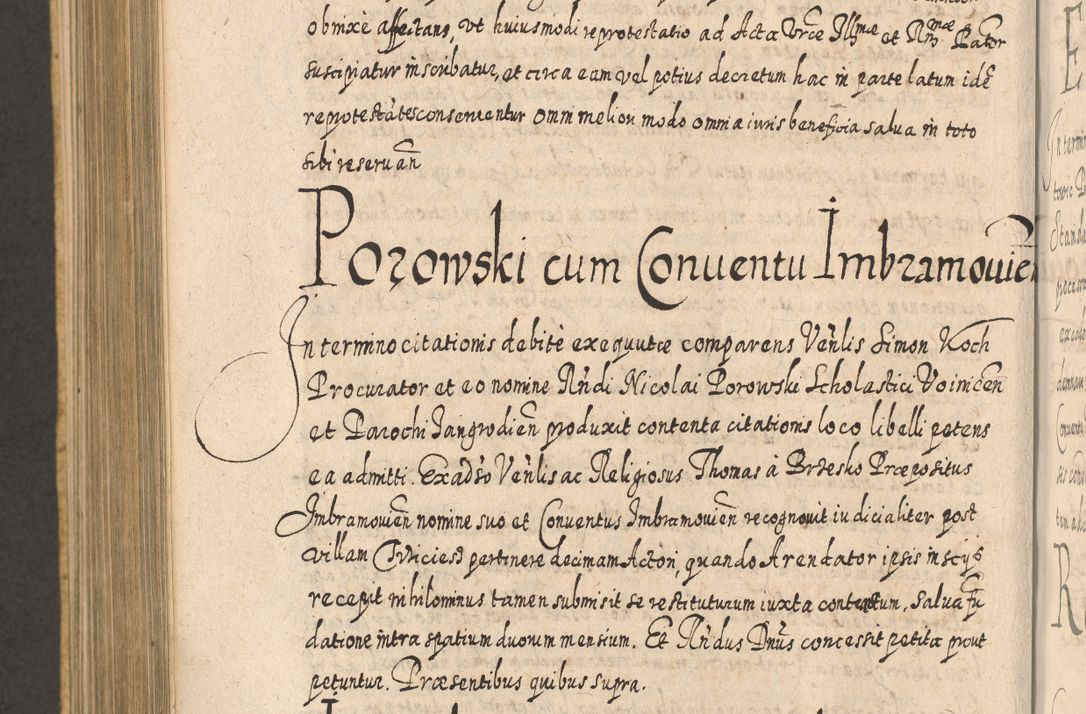 obnixè affectans, ut huiusmodi reprotestatio ad Acta Vrae Illmae et Rmae Pater
suscipiatur inscribatur, et circa eam vel potius decretum hac in parte latum idē
reprotestātes conserventur omni meliori modo omnia iuris beneficia salva in toto
sibi reservan̄
Porowski cum Conuentu Imbramouien
In termino citationis debitè exequutae comparens Ven̄lis Simon Koch
Procurator et eo nomine Rn̄di Nicolai Porowski Scholastici Voinicen̄
et Parochi Jangrodien̄ produxit contenta citationis loco libelli petens
ea admitti. Ex ad̄so Ven̄lis ac Religiosus Thomas à Brzesko Praepositus
Imbramouien̄ nomine suo et Conuentus Imbramouien̄ recognouit iudicialiter post
villam pertinere decimam Actori, quando Arendator ipsis insciis
recepit nihilominus tamen submisit se restituturum iuxta contentum, salua
datione intra spatium duorum mensium. Et Rn̄dus Dn̄us concessit petita prout
petuntur. Praesentibus quibus supra.